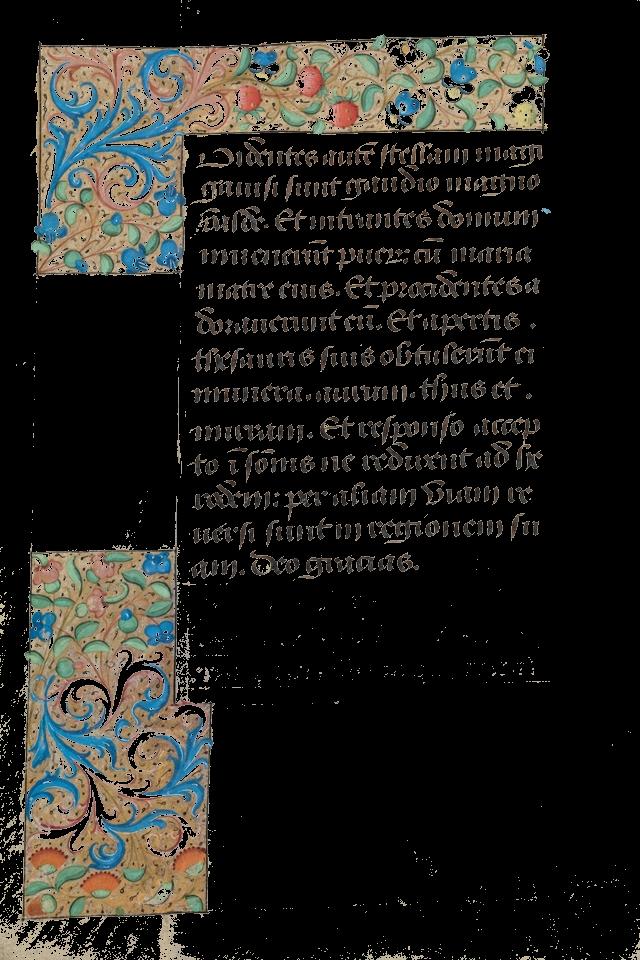 Videntes autē stellam magi
gauisi sunt gaudio magno
valde. Et intrantes domum
inuenerūt pueꝝ cū maria
matre eius. Et procidentes a
dorauerunt eū. Et apertis .
thesauris suis obtulerūt ei
munera. aurum. thus et .
mirram. Et responso accep
to ī sōmis ne redirent ad he
rodem: per aliam viam re
uersi sunt in regionem su
am. Deo gracias.